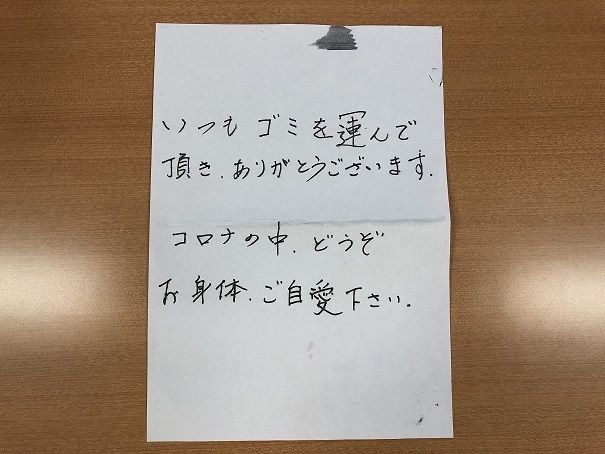 いつもゴミを運んで
頂き、ありがとうございます。
コロナの中、どうぞ
お身体、ご自愛下さい。